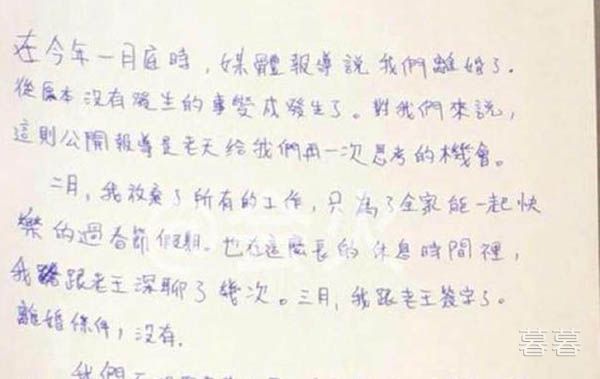 在今年一月底時，媒體報導說我們離婚了。
從原本沒有發生的事變成發生了。對我們來說，
這則公開報導是老天給我們再一次思考的機會。
二月，我放棄了所有的工作，只為了全家能一起快
樂的過春節假期。也在這麼長的休息時間裡，
我跟老王深聊了幾次。三月，我跟老王簽字了。
離婚條件，沒有。
我們
暮暮